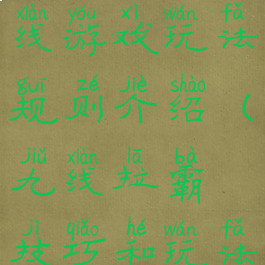 xiàn yóu xì wán fǎ
线游戏玩法
guī zé jiè shào
规则介绍（
jiǔ xiàn lā bà
九线拉霸
jì qiǎo hé wán fǎ
技巧和玩法